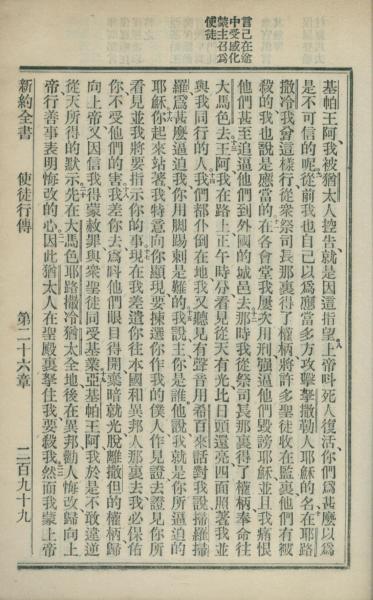 言己在途
中受感化
蒙主召爲
使徒
基帕王阿、我被猶太人控告、就是因這指望、上帝叫死人復活、你們爲甚麼以爲
是不可信的呢、從前我也自己以爲應當多方攻擊拏撒勒人耶穌的名、在耶路
撒冷我曾這樣行、從衆祭司長那裏得了權柄、將許多聖徒收在監裏、他們有被
殺的、我也說是應當的、在各會堂我屢次用刑强逼他們毀謗耶穌、並且我痛恨
他們甚至追逼他們到外國的城邑去、那時我從祭司長那裏得了權柄奉命往
大馬色去、王阿、我在路上、正午時分、看見從天有光、比日頭還亮、四面照著我並
與我同行的人、我們都仆倒在地、我又聽見有聲音用希百來話對我說、掃羅掃
羅、爲甚麼逼迫我、你用脚踢刺是難的、我說、主、你是誰、他說、我就是你所逼迫的
耶穌、你起來站著、我特意向你顯現、要揀選你作我的僕人、作見證、去證見你所
看見並我將要指示你的事、現在我差遣你往本國和異邦人那裏去、我必保佑
你不受他們的害、我差你去爲呌他們眼目得開、棄暗就光、脫離撒但的權柄歸
向上帝、又因信我得蒙赦罪、與衆聖徒同受基業、亞基帕王阿、我於是不敢違逆
從天所得的默示、先在大馬色、耶路撒冷、猶太全地、後在異邦、勸人悔改歸向上
帝、行善事表明悔改的心、因此猶太人在聖殿裏拏住我要殺我、然而我蒙上帝
新約全書 使徒行傳 第二十六章 二百九十九